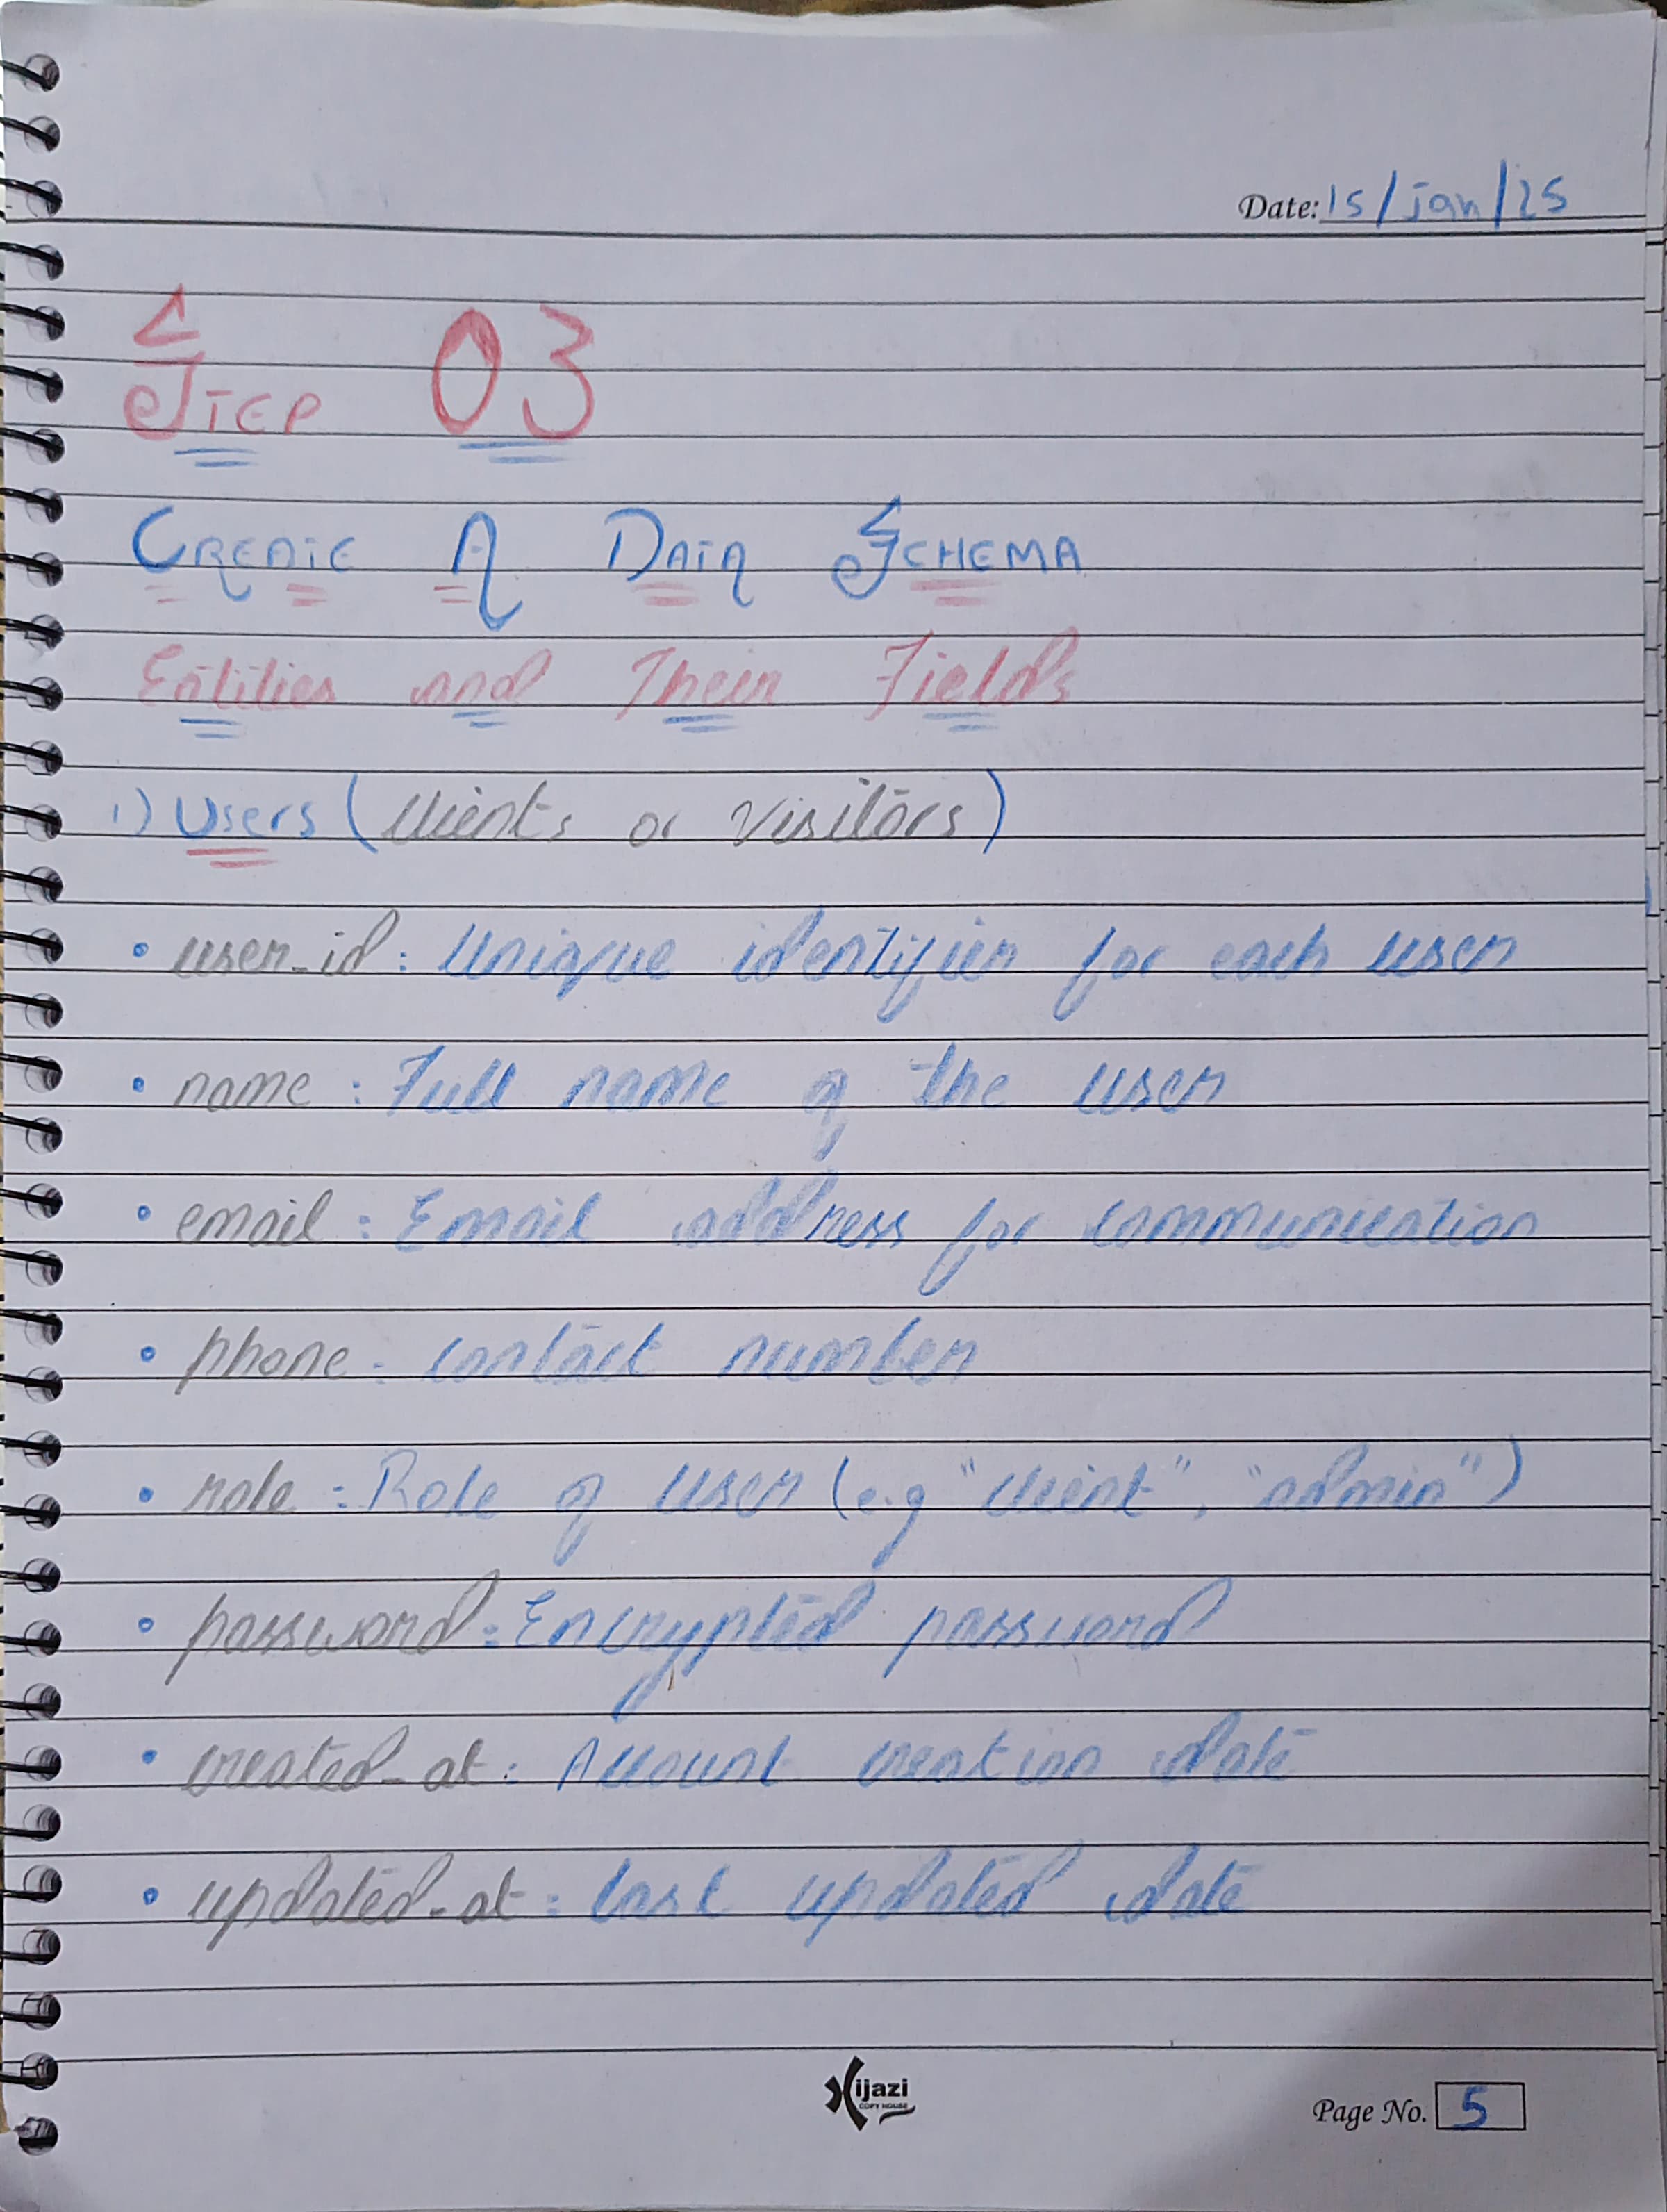 Date: 15/Jan/25
STEP 03
CREATE A DATA SCHEMA
Entities and Their Fields
1) Users (Clients or Visitors)
• user_id : Unique identifier for each user
• name : Full name of the user
• email : Email address for communication
• phone : contact number
• role : Role of user (e.g "client", "admin")
• password : Encrypted password
• created_at : Account creation date
• updated_at : last updated date
Hijazi
COPY HOUSE
Page No. 5